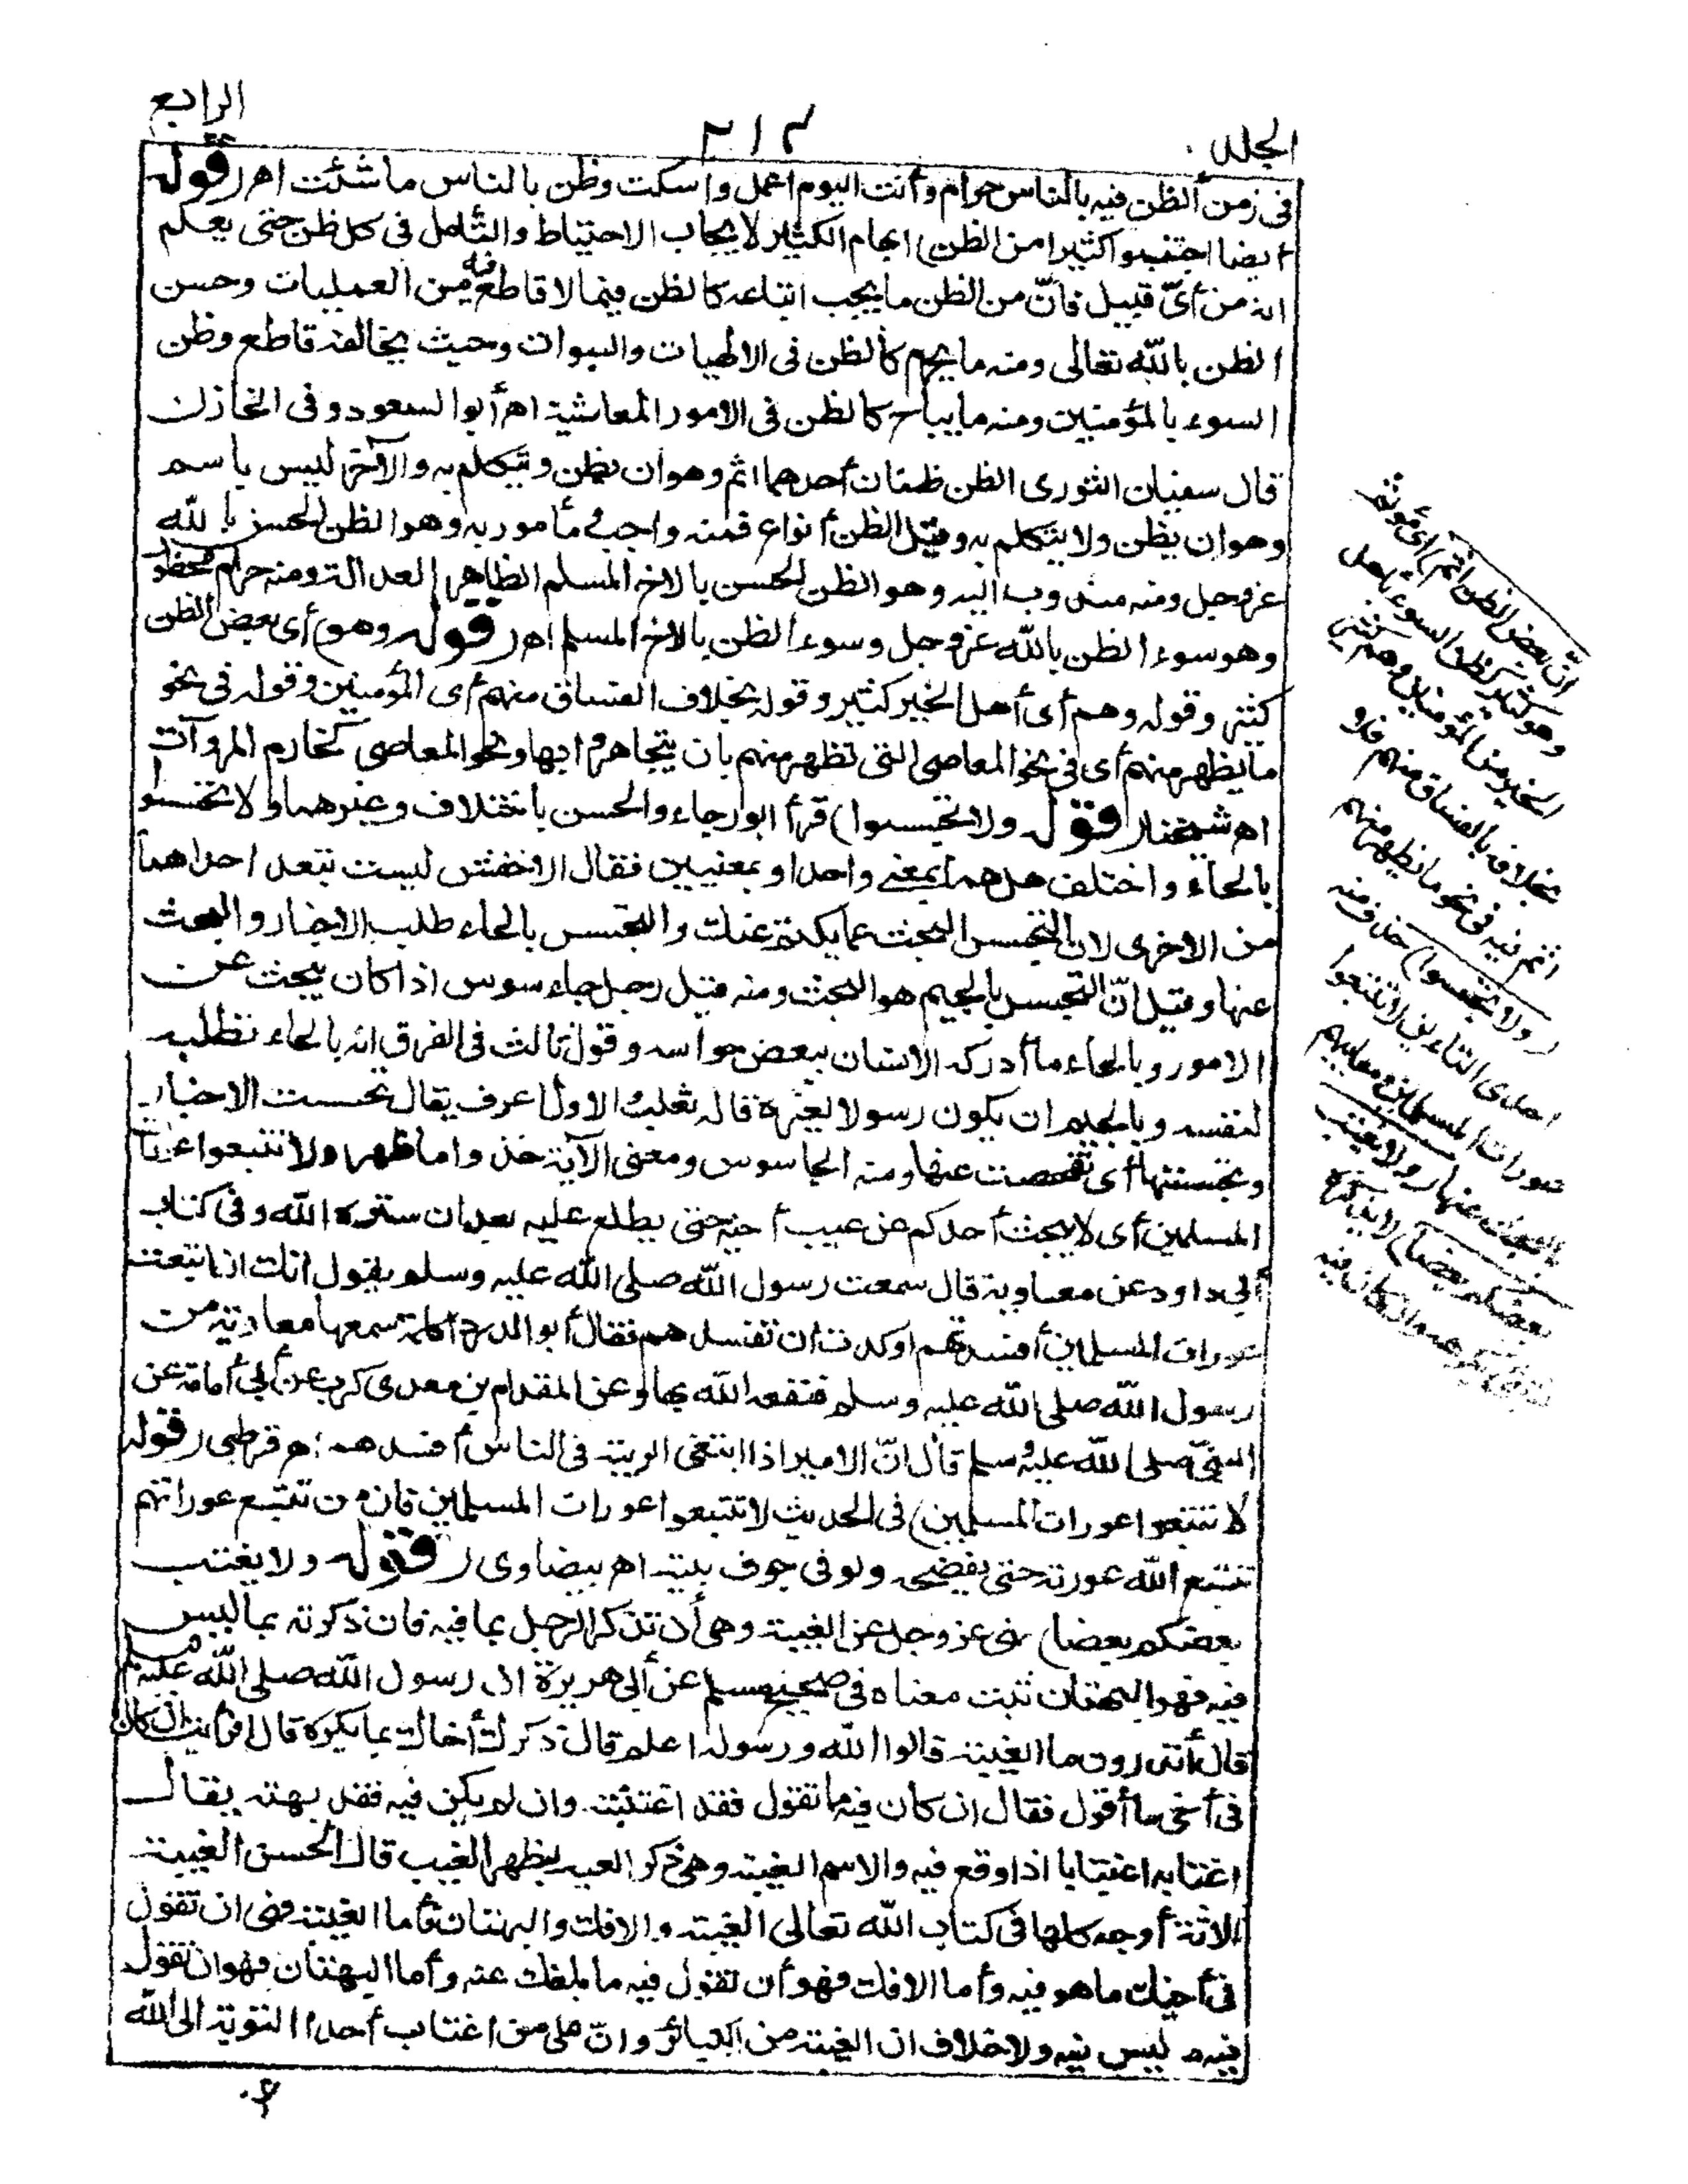 الرابع
٢١٣
الجلد
فى زمن الظن فيه بالناس حرام وأنت اليوم اعمل واسكت وظن بالناس ماشئت اهـ (قوله
ايضا اجتنبوا كثيرا من الظن) ابهام الكثير لايجاب الاحتياط والتأمل فى كل ظن حتى يعلم
انه من أىّ قبيل فانّ من الظن مايجب اتباعه كالظن فيما لا قاطع فيه من العمليات وحسن
الظن بالله تعالى ومنه مايحرم كالظن فى الالهيات والنبوات وحيث يخالفه قاطع وظن
السوء بالمؤمنين ومنه مايباح كالظن فى الامور المعاشية اهـ أبوالسعود وفى الخازن
قال سفيان الثورى الظن ظنان أحدهما اثم وهو ان يظن ويتكلم به والآخر ليس باسم
وهو ان يظن ولا يتكلم به وقيل الظن أنواع فمنه واجب ومأمور به وهو الظن الحسن بالله
عز وجل ومنه مندوب اليه وهو الظن الحسن بالاخ المسلم الظاهر العدالة ومنه حرام محظور
وهو سوء الظن بالله عز وجل وسوء الظن بالاخ المسلم اهـ (قوله وهو) أى بعض الظن
كثير وقوله وهم أى أهل الخير كثير وقوله بخلاف الفساق منهم أى المؤمنين وقوله فى نحو
مايظهر منهم أى فى نحو المعاصى التى تظهر منهم بان يتجاهروا بها ونحو المعاصى كخارم المروآت
اهـ شيخنا (قوله ولا تجسسوا) قرأ ابورجاء والحسن باختلاف وغيرهما ولا تحسسوا
بالحاء واختلف هل هما بمعنى واحد او بمعنيين فقال الاخفش ليست تبعد احداهما
من الاخرى لان التجسس البحث عما يكتم عنك والتحسس بالحاء طلب الاخبار والبحث
عنها وقيل انّ التجسس بالجيم هو البحث ومنه قيل رجل جاءسوس اذا كان يبحث عن
الامور وبالحاء ما أدركه الانسان ببعض حواسه وقول ثالث فى الفرق انه بالحاء تطلبه
لنفسه وبالجيم ان يكون رسولا لغيره قاله ثعلب والاول اعرف يقال تحسست الاخبار
وتجسستها أى تفحصت عنها ومنه الجاسوس ومعنى الآية خذوا ماظهر ولا تتبعوا عورات
المسلمين أى لا يبحث أحدكم عن عيب أخيه حتى يطلع عليه بعد ان ستره الله وفى كتاب
أبى داود عن معاوية قال سمعت رسول الله صلى الله عليه وسلم يقول انك ان اتبعت
عورات المسلمين أفسدتهم اوكدت ان تفسدهم فقال أبو الدرداء كلمة سمعها معاوية من
رسول الله صلى الله عليه وسلم فنفعه الله بها وعن المقدام بن معدى كرب عن أبى أمامة عن
النبىّ صلى الله عليه وسلم قال انّ الامير اذا ابتغى الريبة فى الناس أفسدهم اهـ قرطبى (قوله
لا تتبعوا عورات المسلمين) فى الحديث لا تتبعوا عورات المسلمين فان من تتبع عوراتهم
تتبع الله عورته حتى يفضحه ولو فى جوف بيته اهـ بيضاوى (قوله ولا يغتب
بعضكم بعضا) نهى عز وجل عن الغيبة وهى أن تذكر الرجل بما فيه فان ذكرته بما ليس
فيه فهو البهتان ثبت معناه فى صحيح مسلم عن أبى هريرة ان رسول الله صلى الله عليه وسلم
قال أتدرون ما الغيبة قالوا الله ورسوله اعلم قال ذكرك أخاك بما يكره قال افرأيت ان كان
فى أخى ما أقول فقال ان كان فيه ما تقول فقد اغتبته وان لم يكن فيه فقد بهته يقال
اغتابه اغتيابا اذا وقع فيه والاسم الغيبة وهى ذكر العيب بظهر الغيب قال الحسن الغيبة
ثلاثة أوجه كلها فى كتاب الله تعالى الغيبة والافك والبهتان فأما الغيبة فهى ان تقول
فى أخيك ما هو فيه وأما الافك فهو أن تقول فيه ما بلغك عنه وأما البهتان فهو ان تقول
فيه ما ليس فيه ولا خلاف ان الغيبة من الكبائر وانّ على من اغتاب أحدا التوبة الى الله
انّ بعض الظن اثم) أى مؤثم
وهو كثير كظن السوء بأهل
الخير من المؤمنين وهم كثير
بخلافه بالفساق منهم فلا
اثم فيه فى نحو ما يظهر منهم
(ولا تجسسوا) حذف منه
احدى التاءين لا تتبعوا
عورات المسلمين ومعايبهم
بالبحث عنها (ولا يغتب
بعضكم بعضا) لا يذكره
بشئ يكرهه وان كان فيه